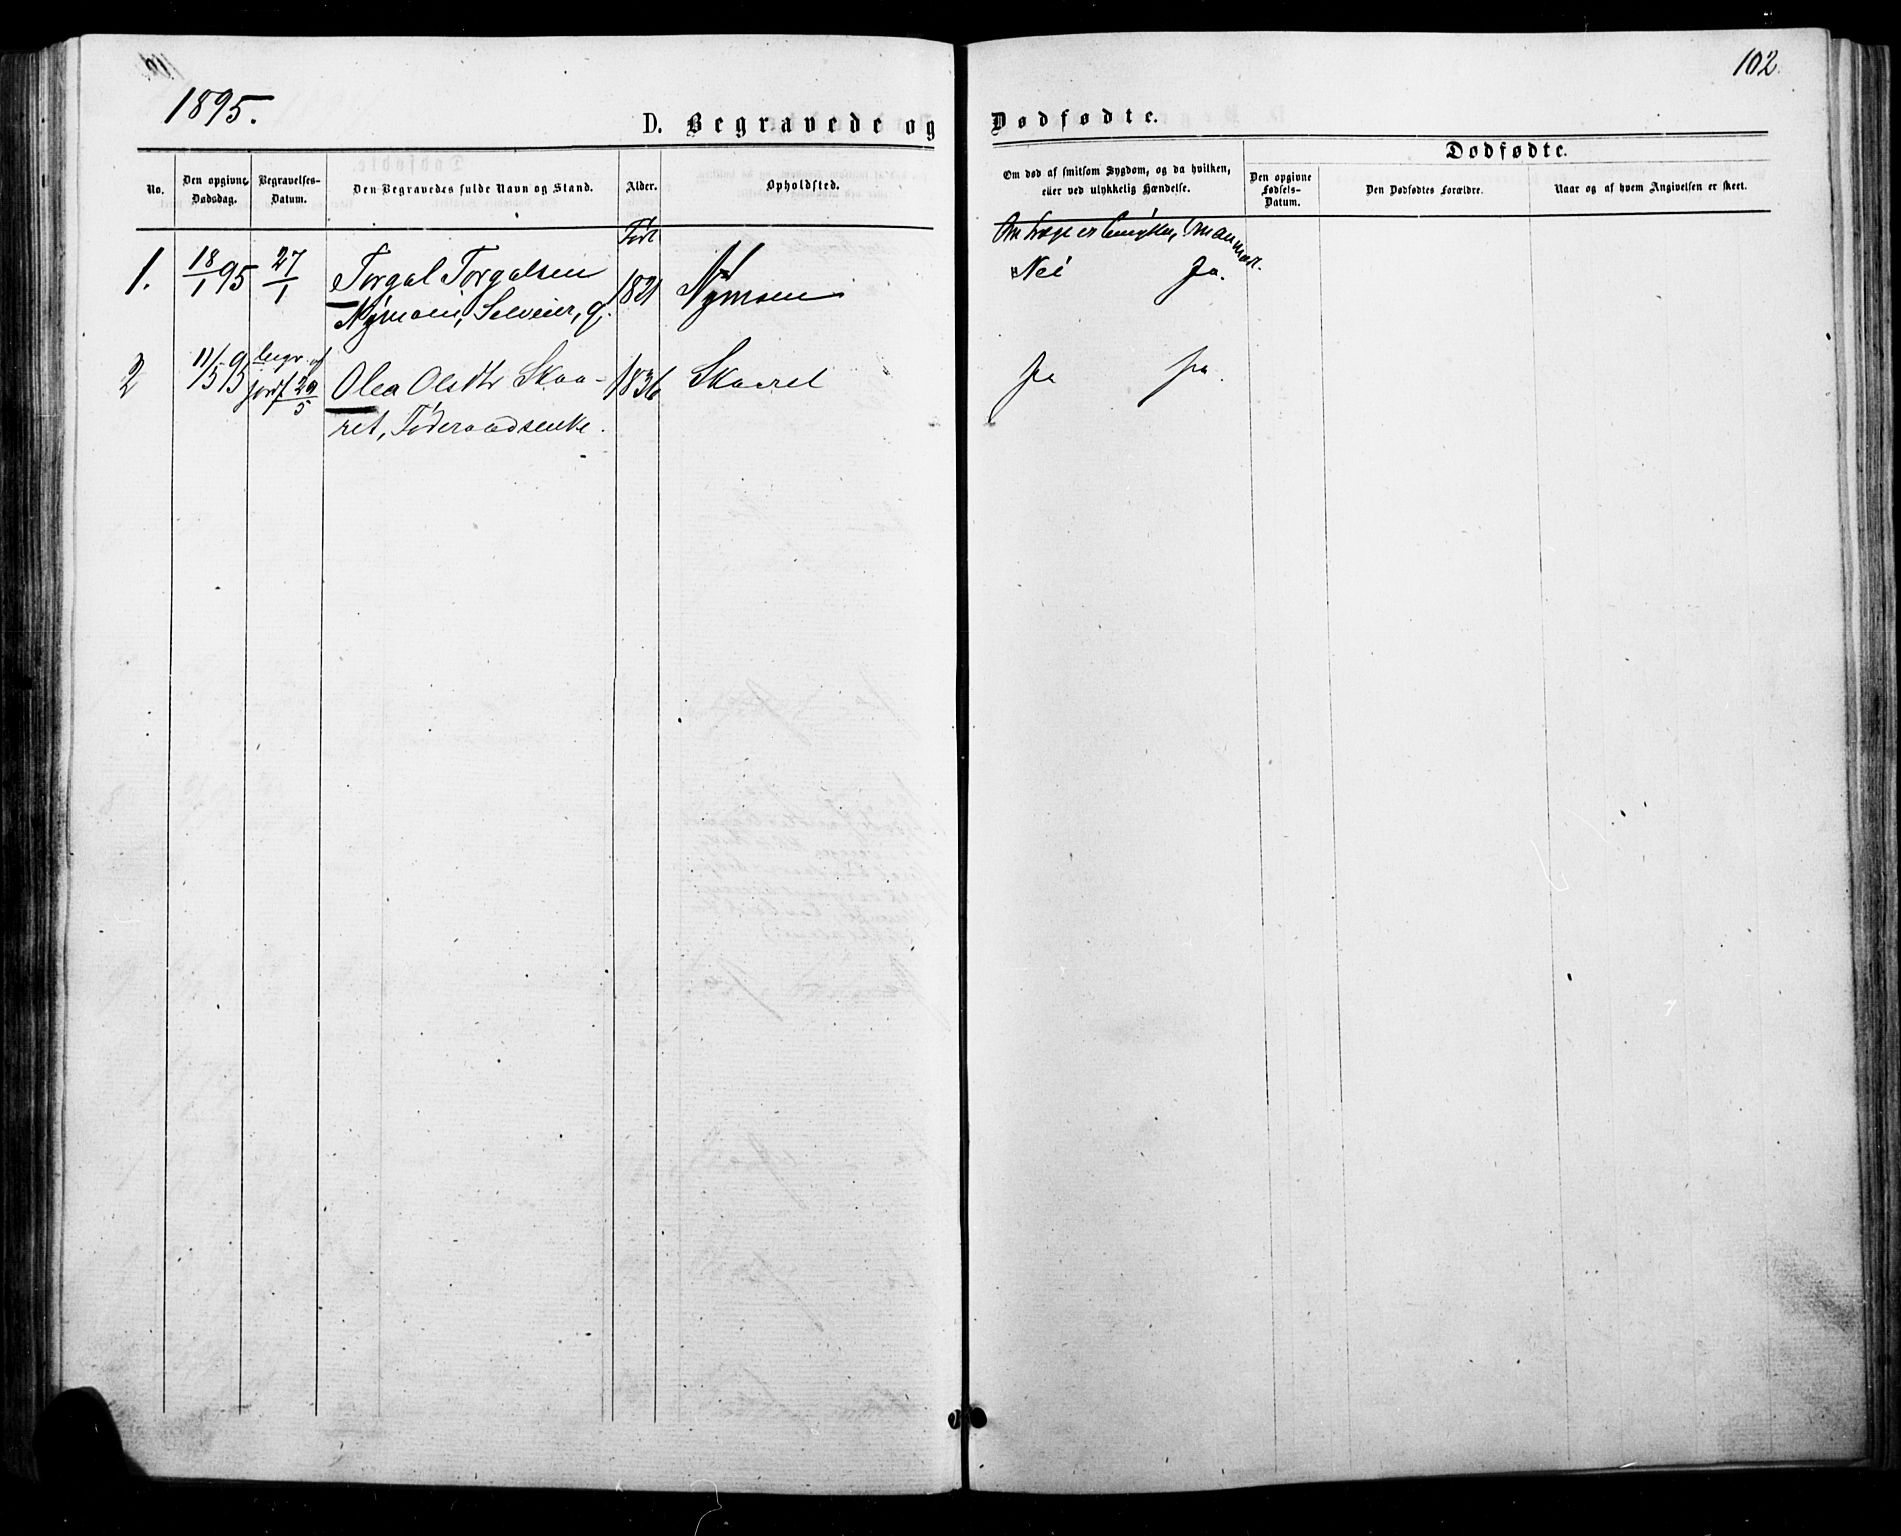 102.
1895.
D. Begravede og Dødfødte.
Dødfødte.
No.
Den opgivne Dødsdag.
Begravelses-Datum.
Den Begravedes fulde Navn og Stand.
Alder.
Opholdsted.
Om død af smitsom Sygdom, og da hvilken, eller ved ulykkelig Hændelse.
Den opgivne Fødsels-Datum.
Den Dødfødtes Forældre.
Naar og af hvem Angivelsen er skeet.
Født
Om Læge er
1. 18/1 95 27/1 Torgal Torgalsen 1821 Nymoen Nei Ja.
Nymoen, Selveier, g.
2 11/5 95 begr.
jordf 29/5 Olea Olsdtr Skaa- 1836 Skaaret Ja Ja.
ret, Føderaadsenke.